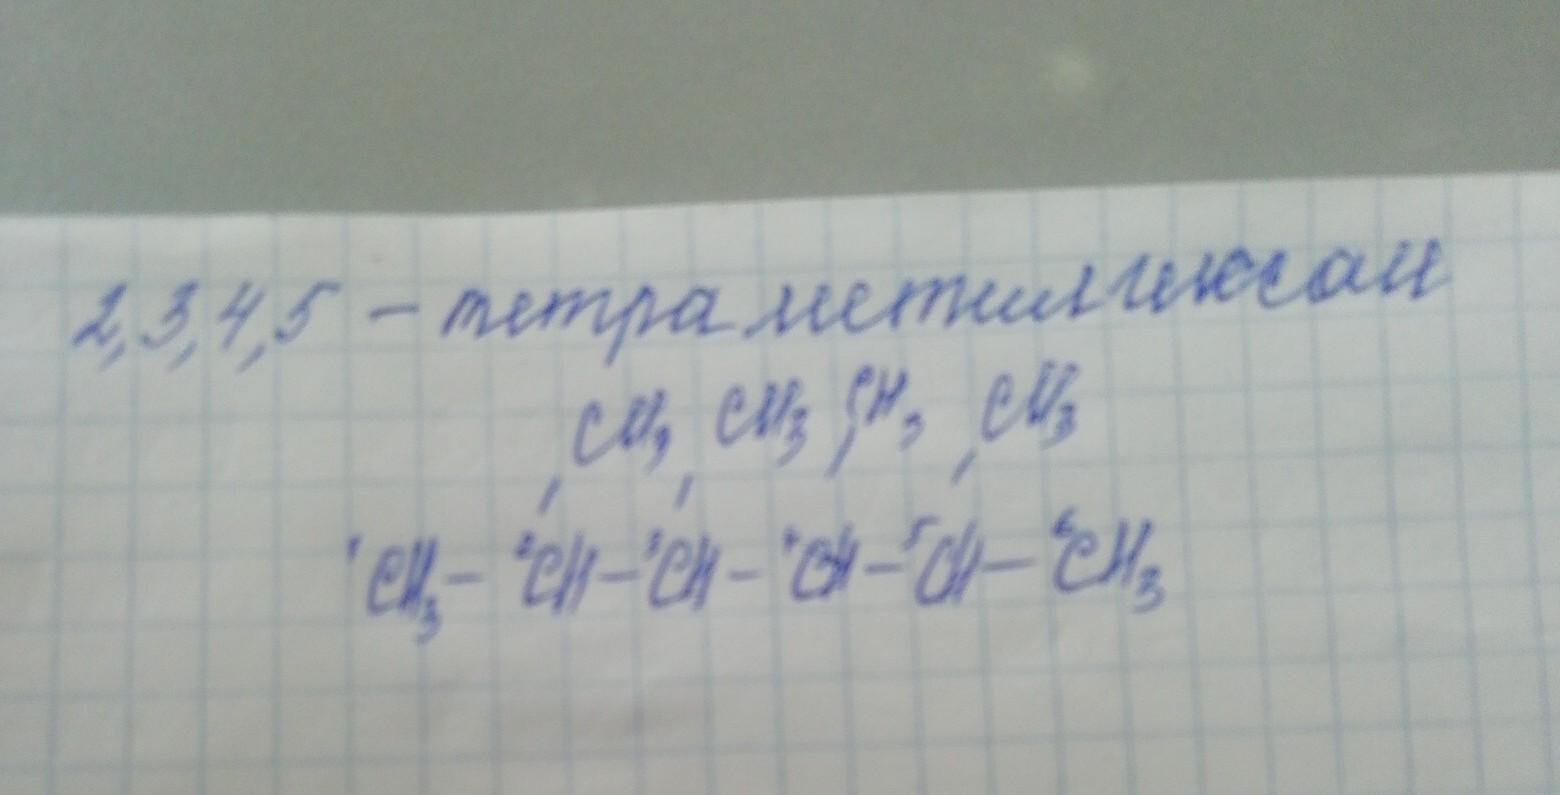 2,3,4,5 – тетраметилгексан
CH₃ CH₃ CH₃ CH₃
¹CH₃ – ²CH – ³CH – ⁴CH – ⁵CH – ⁶CH₃